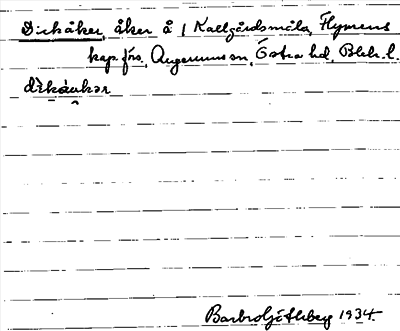 Dikåker, åker å 1 Kallgårdsmåla, Flymens
kap. förs., Augerums sn, Östra hd, Blek. l.
dikåukər
Barbro Götlberg 1934.